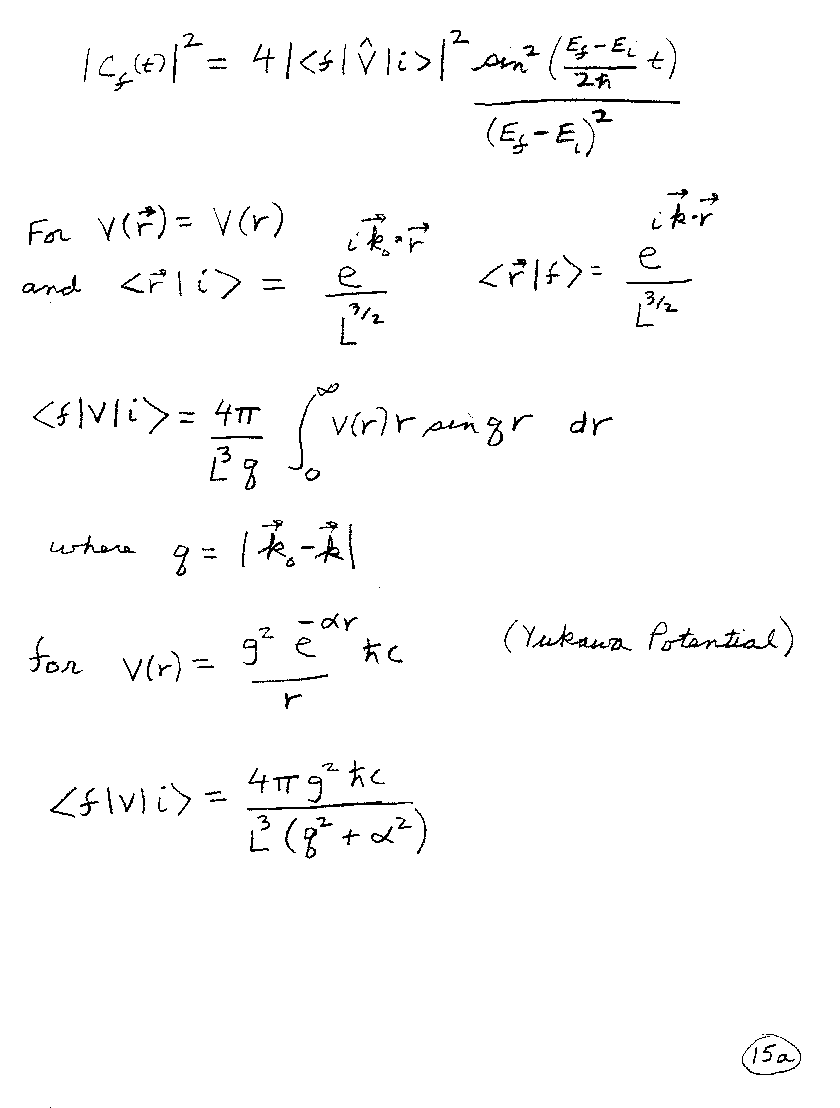 |C_f(t)|² = 4|<f|V̂|i>|² sin²((E_f − E_i)/2ħ t) / (E_f − E_i)²
For V(r⃗) = V(r)
and <r⃗|i> = e^{i k⃗₀·r⃗} / L^{3/2} <r⃗|f> = e^{i k⃗·r⃗} / L^{3/2}
<f|V|i> = 4π / (L³ q) ∫₀^∞ V(r) r sin qr dr
where q = |k⃗₀ − k⃗|
for V(r) = g² e^{−αr} / r ħc (Yukawa Potential)
<f|V|i> = 4π g² ħc / (L³ (q² + α²))
15a